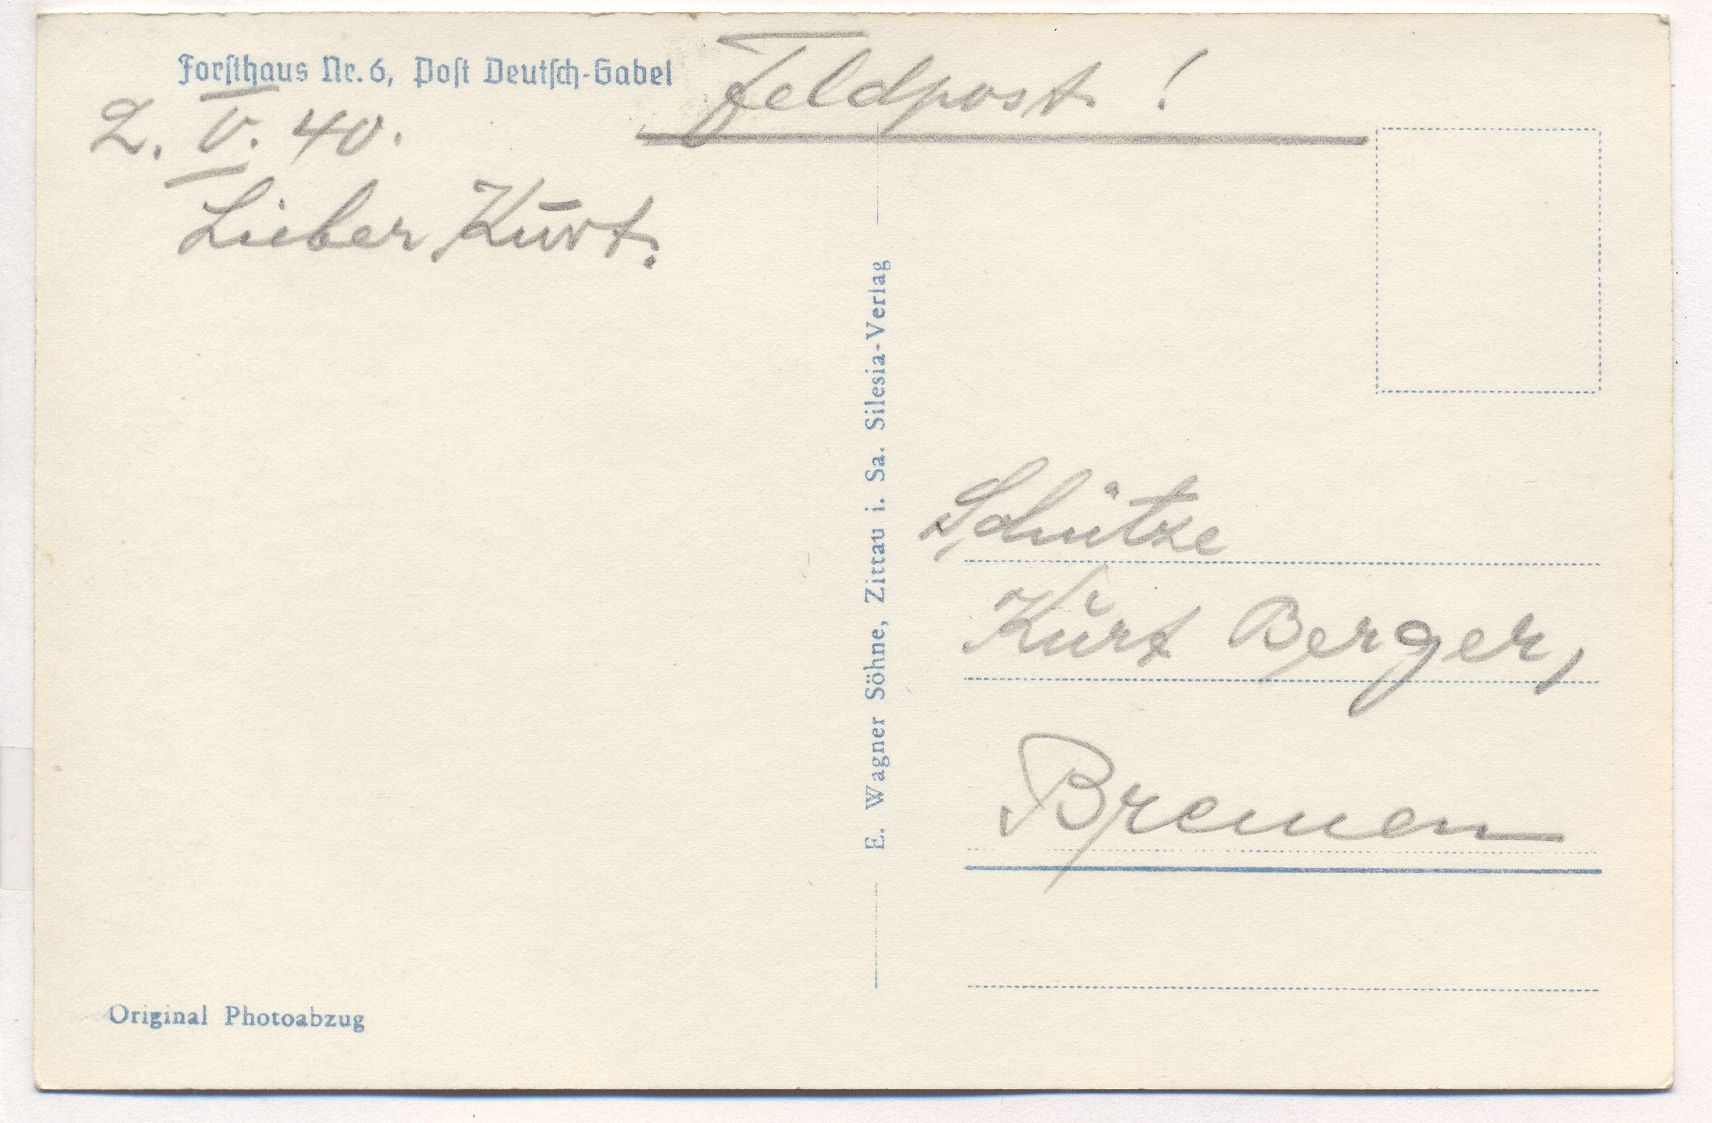 Forsthaus Nr. 6, Post Deutsch-Gabel
Feldpost!
2. V. 40.
Lieber Kurt.
E. Wagner Söhne, Zittau i. Sa. Silesia-Verlag
Schütze
Kurt Berger,
Bremen
Original Photoabzug